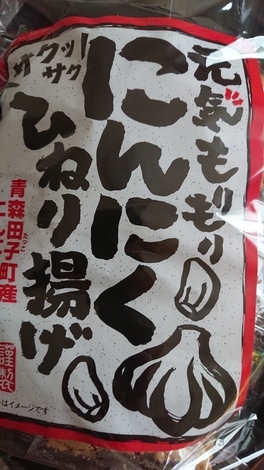 元気もりもり
サクッ!サク
にんにく
ひねり揚げ
青森田子町産
にんにく
謹製
はイメージです